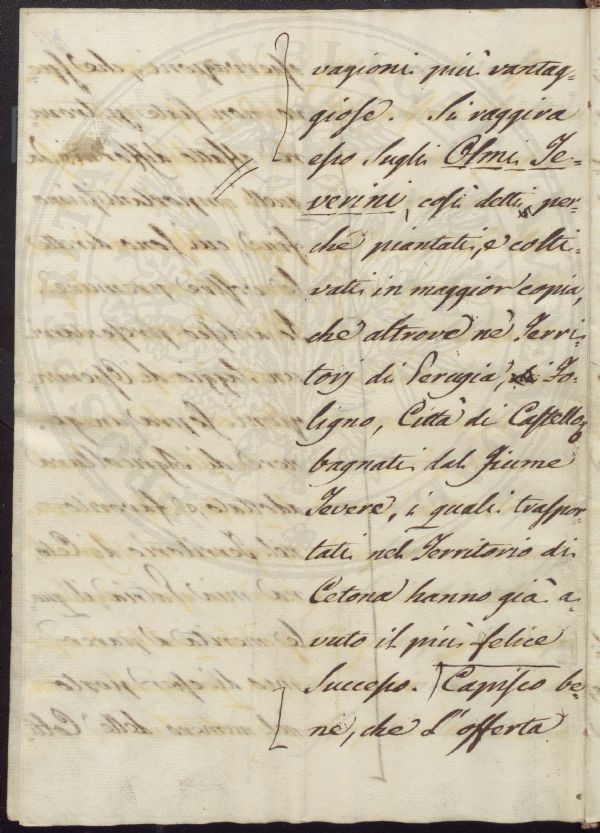 vagioni più vantag-
giose. Si raggira
esso sugli Olmi Te-
verini, così detti, per-
chè piantati, e colti-
vati in maggior copia,
che altrove nè Terri-
torj di Perugia, Fo-
ligno, Città di Castello,
bagnati dal Fiume
Tevere, i quali traspor-
tati nel Territorio di
Cetona hanno già a-
vuto il più felice
successo. Capisco be-
ne, che l'offerta